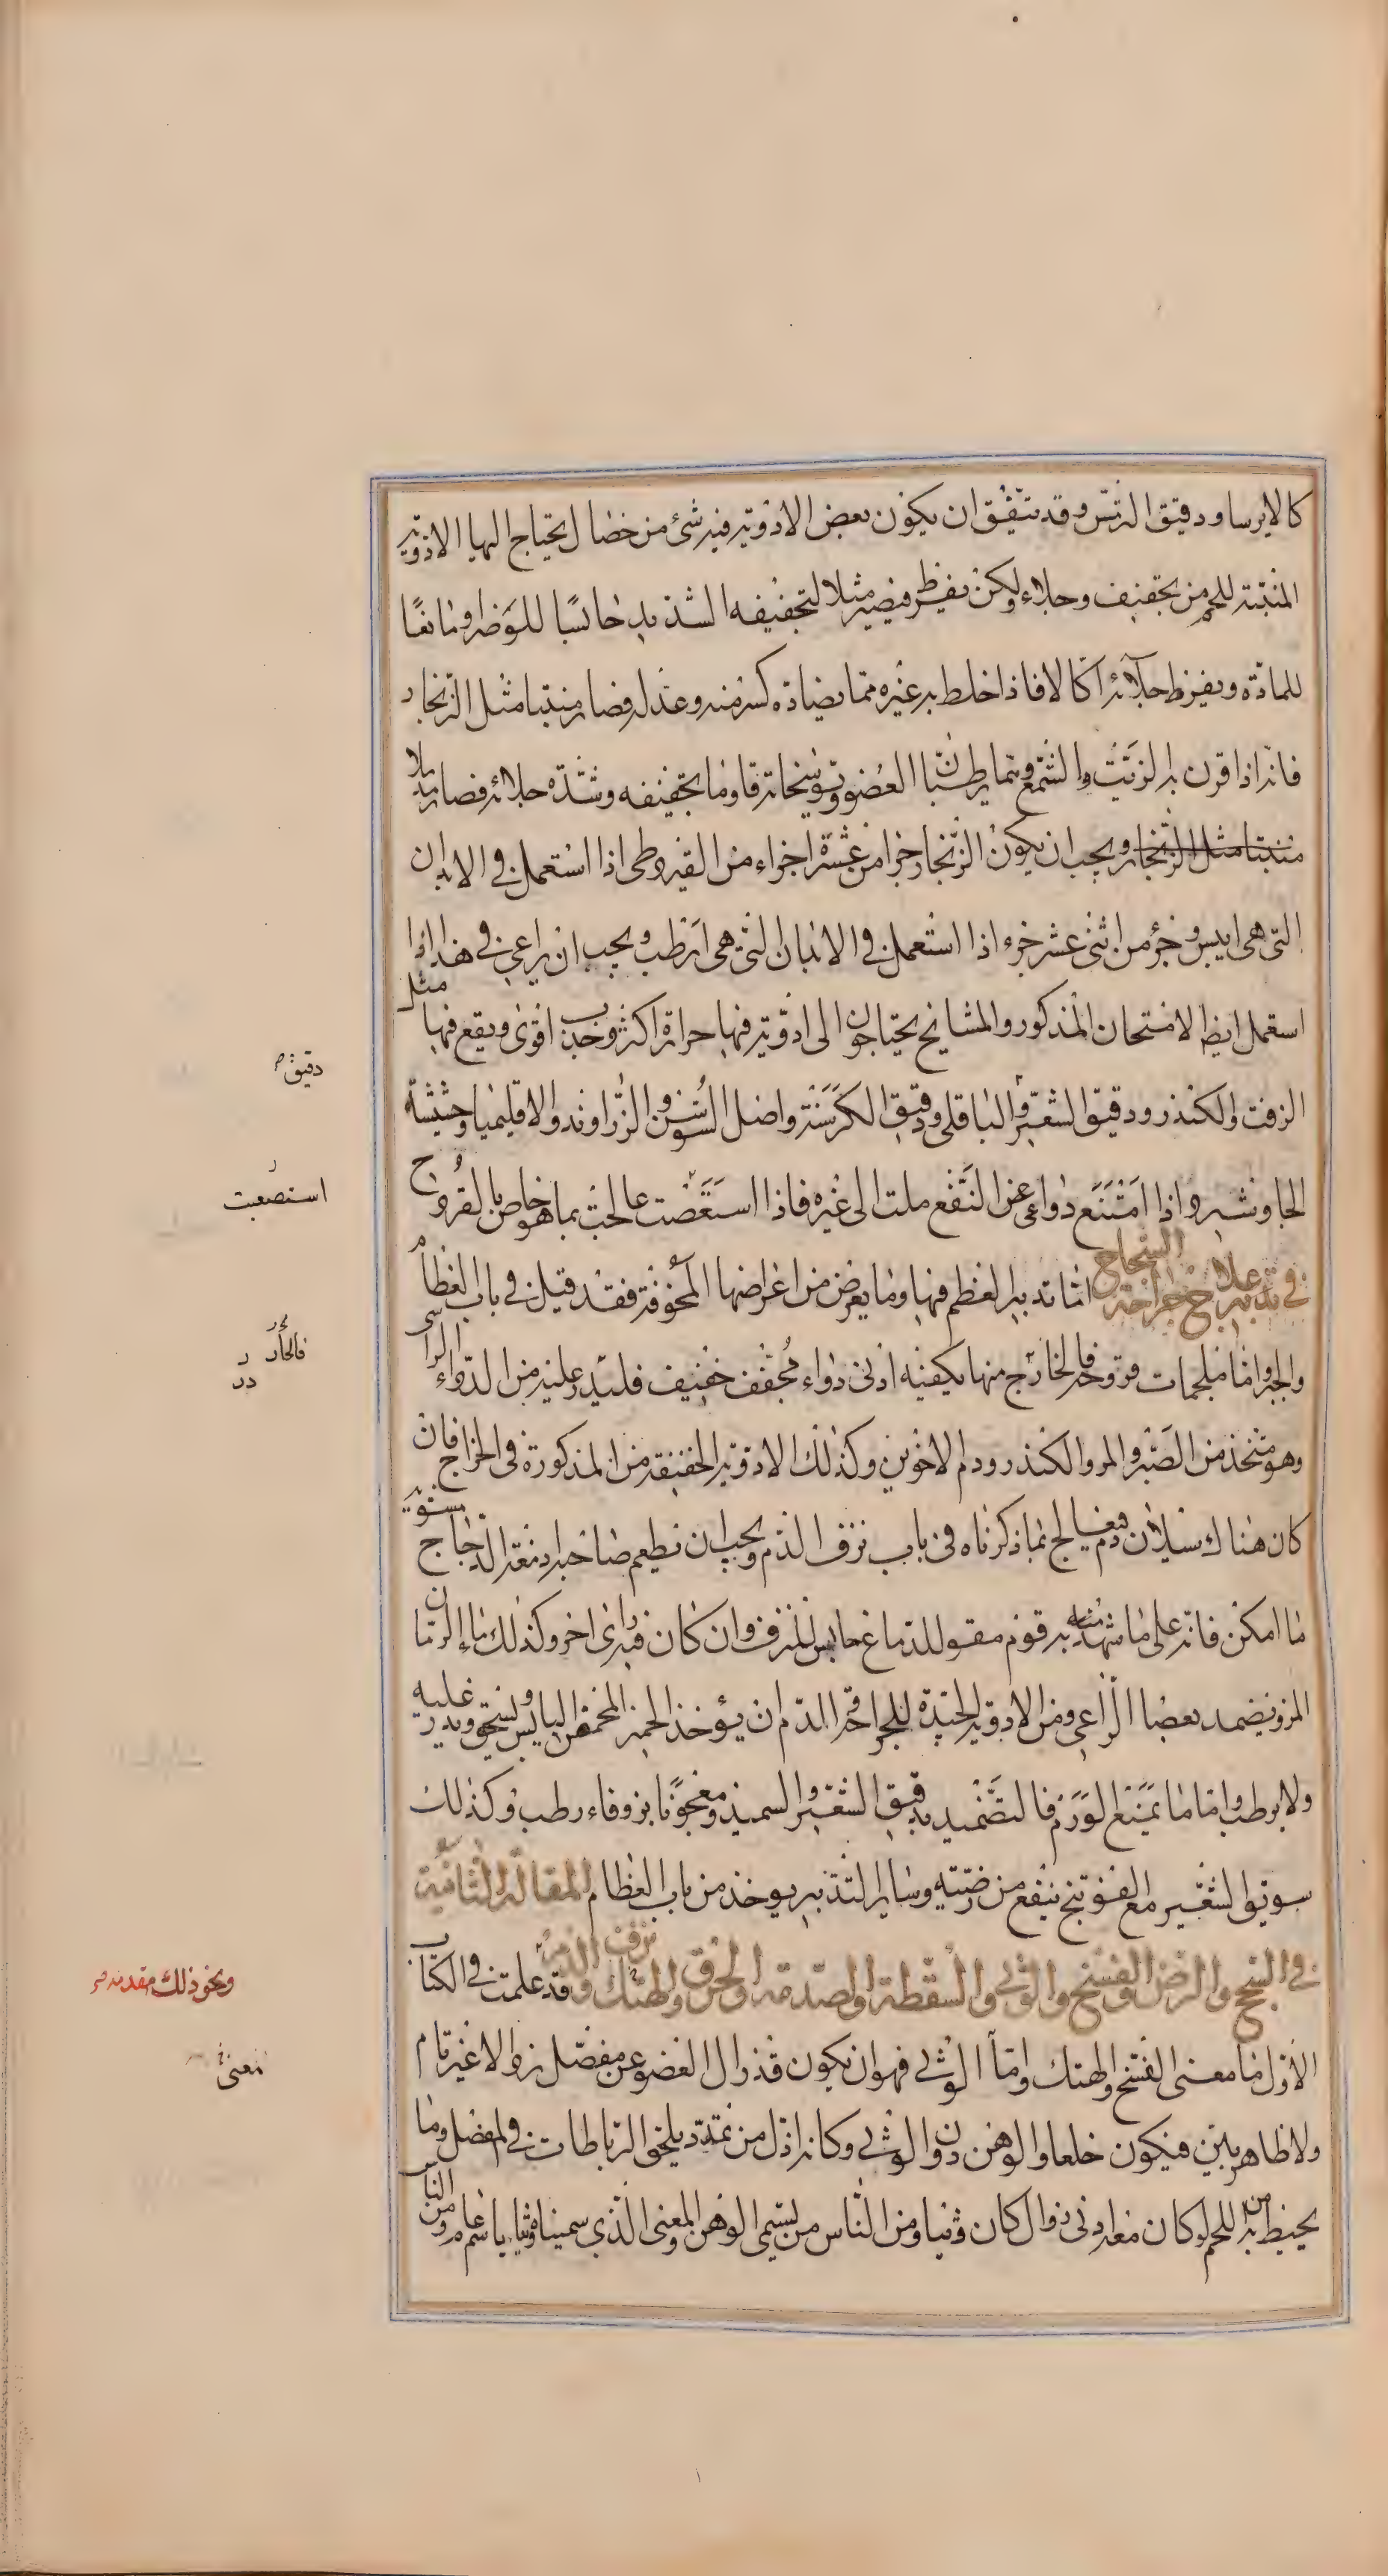 كالايرسا ودقيق الترمس وقد يتفق ان يكون بعض الادوية فيه شئ من خصال يحتاج اليها الادوية
المنبتة للحم من تجفيف وجلاء ولكن يفرط فيصير مثلا لتجفيفه الشديد حابسا للوضر ومانعا
للمادة ويفرط جلائه اكالا فاذا خلط به غيره مما يضاده كسر منه وعدله فصار منبتا مثل الزنجار
فانه اذا قرن به الزيت والشمع وهما يرطبان العضو ويوسخانه قاوما تجفيفه وشدة جلائه فصار
منبتا مثل الزنجار ويجب ان يكون الزنجار جزا من عشرة اجزاء من القيروطى اذا استعمل فى الابدان
التى هى ايبس وجزؤ من اثنى عشر جزء اذا استعمل فى الابدان التى هى ارطب ويجب ان يراعى فى هذا اذا
استعمل ايضا الامتحان المذكور والمشايخ يحتاجون الى ادوية فيها حرارة اكثر وجذب اقوى ويقع فيها مثل
الزفت والكندر ودقيق الشعير والباقلى ودقيق الكرسنة واصل السوسن والزراوند والاقليميا وحشيشة
الجاوشير واذا امتنع دواء عن النفع ملت الى غيره فاذا استعصت عالجت بما هو خاص بالقروح
فى تدبير علاج جراحة الشجاج اما تدبير العظم فيها وما يعرض من اعراضها المخوفة فقد قيل فى باب العظام
والجبر واما ملحمات قروحه فالخارج منها يكفيه ادنى دواء مجفف خفيف فليذر عليه من الدواء الراسى
وهو متخذ من الصبر والمر والكندر ودم الاخوين وكذلك الادوية الخفيفة من المذكورة فى الجراح فان
كان هناك سيلان دم فيعالج بما ذكرناه فى باب نزف الدم ويجب ان يطعم صاحبه ادمغة الدجاج مستوية
ما امكن فانه على ما شهد به قوم مقو للدماغ حابس للنزف وان كان فيه راى اخر وكذلك ماء الرمان
المز ويضمد بعصا الراعى ومن الادوية الجيدة للجراحة الدم ان يؤخذ الخبز المخمر اليابس ويسحق ويذر عليه
ولا يرطب واما ما يمنع الورم فالتضميد بدقيق الشعير والسميذ ومعجونا بزوفاء رطب وكذلك
سويق الشعير مع الفوتنج ينفع من رضته وسائر التدبير يوخذ من باب العظام المقالة الثانية
فى السحج والرض والفسخ والوثى والسقطة والصدمة والخرق والهتك ونزف الدم وقد علمت فى الكتاب
الاول ما معنى الفسخ والهتك واما الوثى فهو ان يكون قد زال العضو عن مفصل زوالا غير تام
ولا ظاهر بين فيكون خلعا والوهن دون الوثى وكانه اذى من تمدد يلحق الرباطات فى المفصل وما
يحيط به من اللحم لو كان معه ادنى زوال كان وثيا ومن الناس من يسمى الوهن والمعنى الذى سميناه وثيا باسم عام ومن الناس
دقيق
استصعبت
فالحار
ونحو ذلك مقدمه
معنى